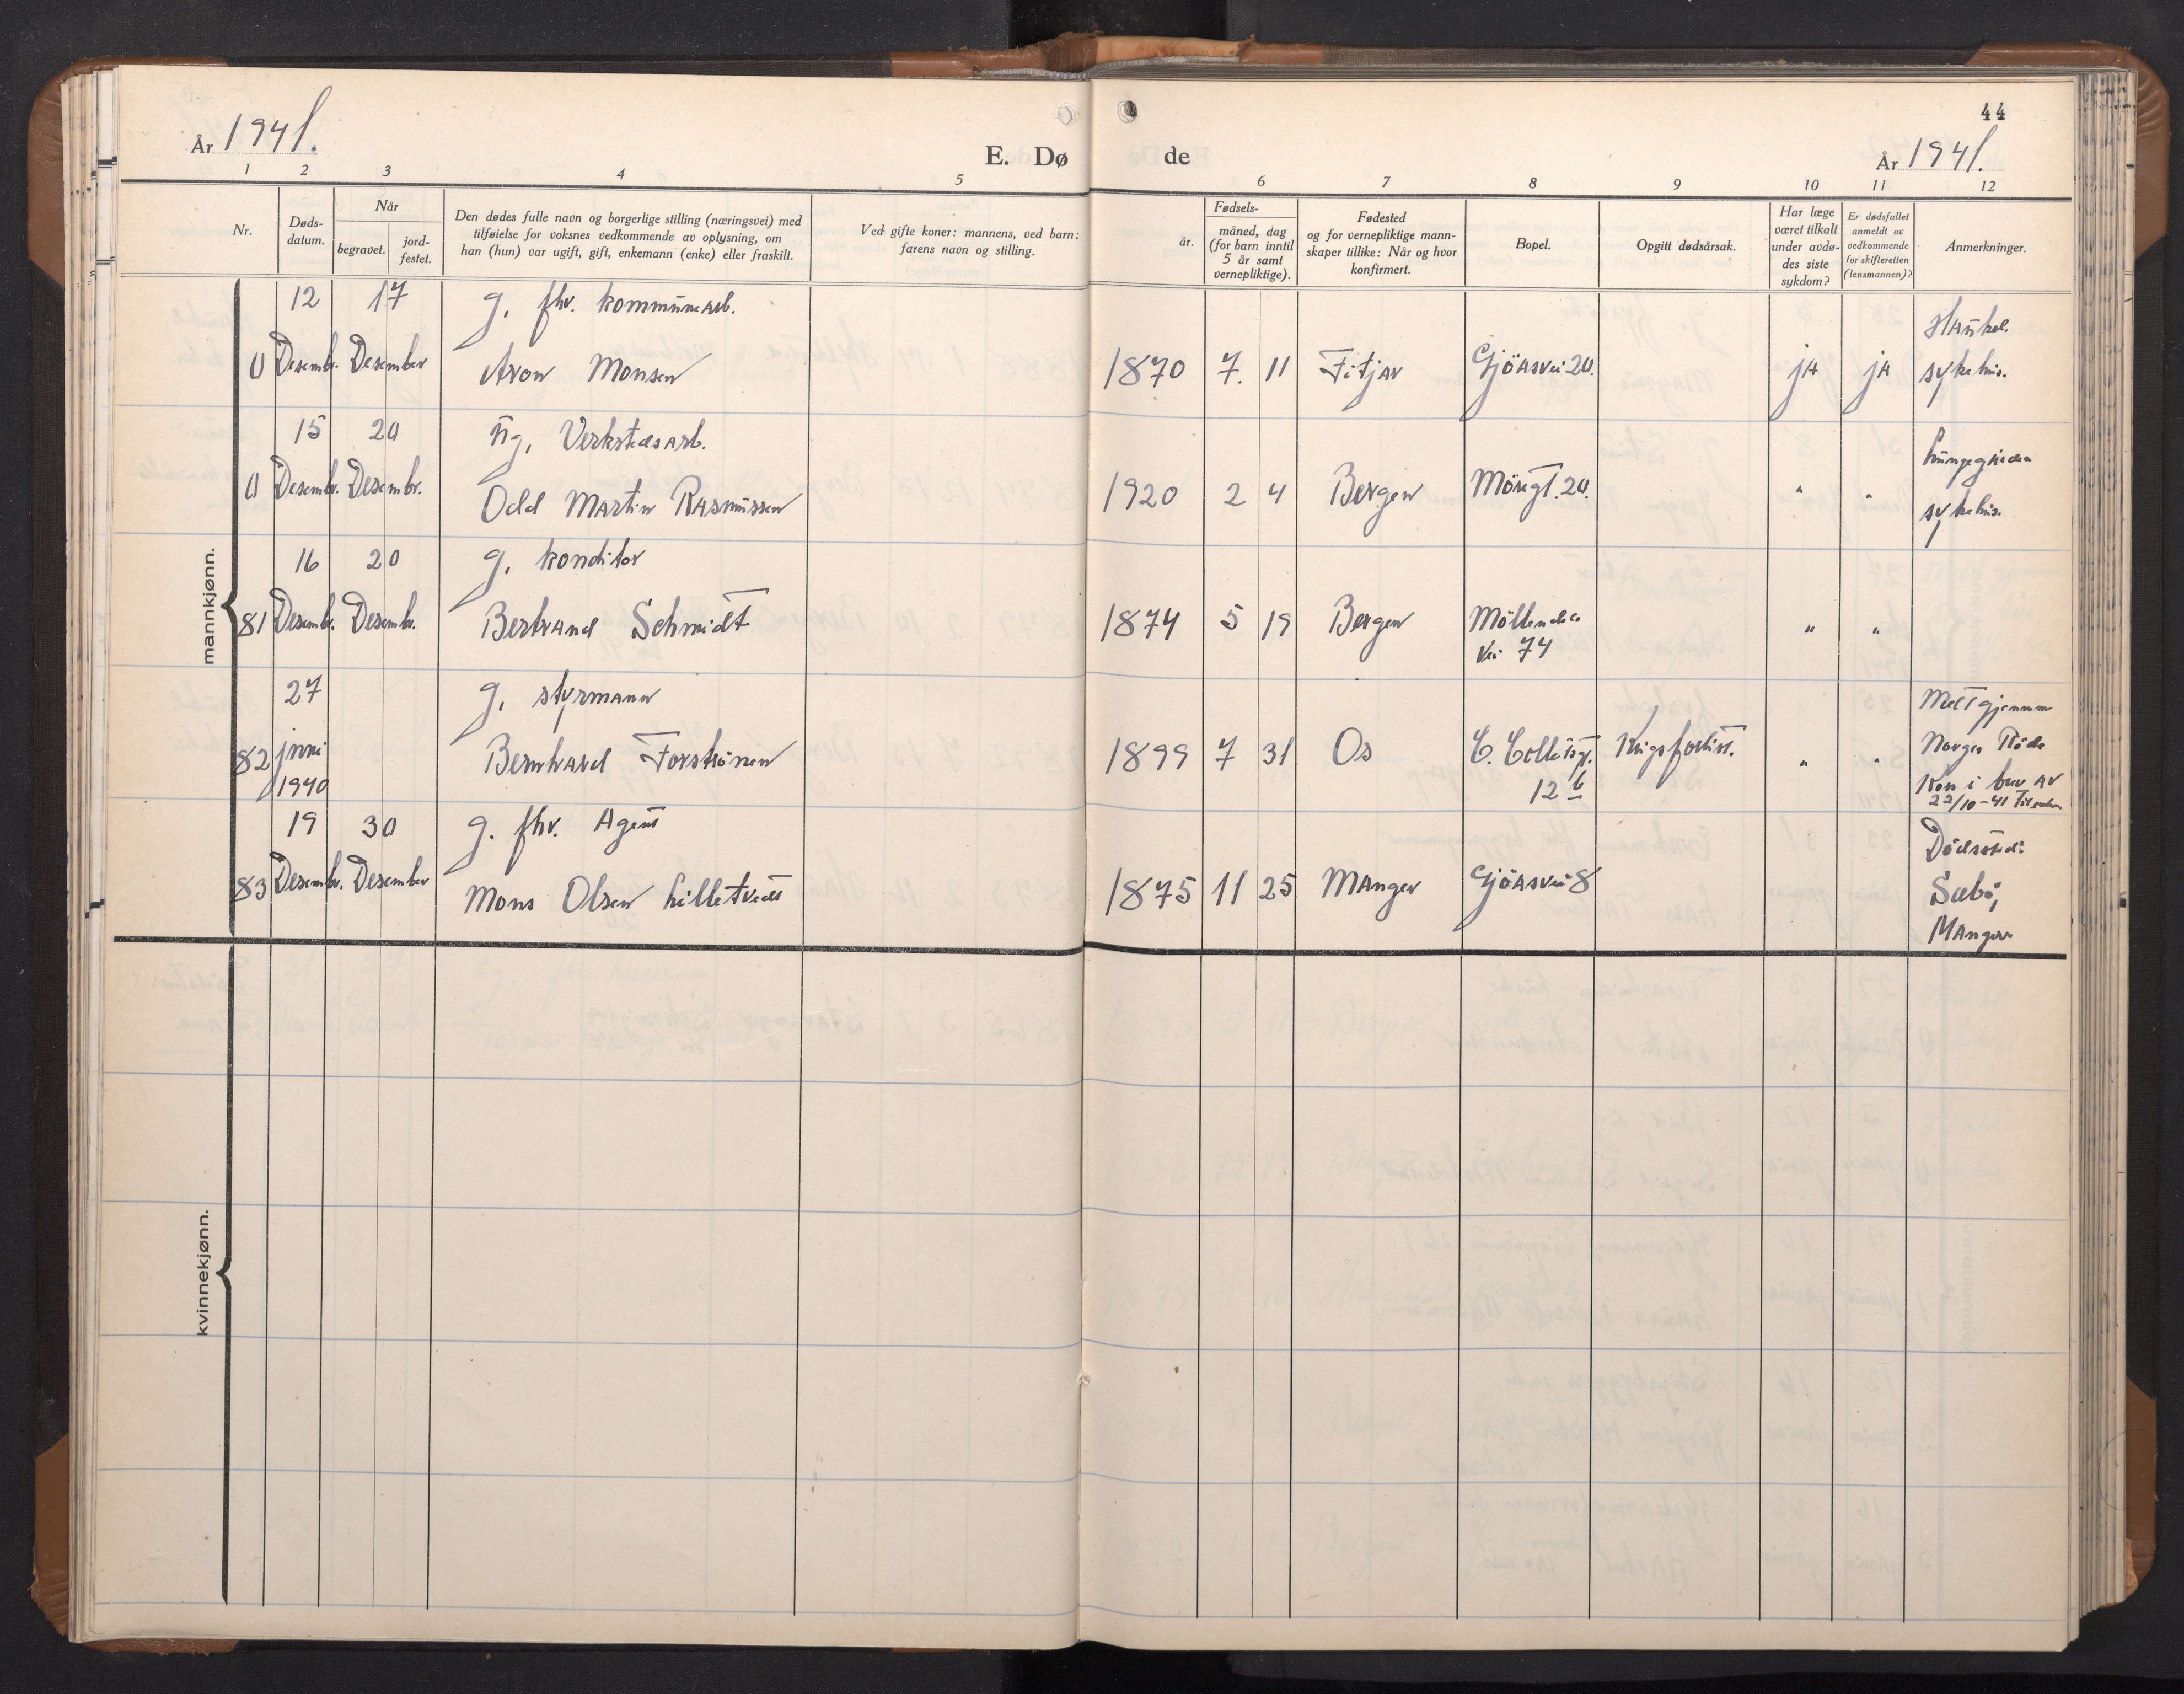 44
År 1941.
E. Dø de
År 1941.
1 2 3 4 5 6 7 8 9 10 11 12
Nr.
Døds-
datum.
Når
begravet.
jord-
festet.
Den dødes fulle navn og borgerlige stilling (næringsvei) med
tilføielse for voksnes vedkommende av oplysning, om
han (hun) var ugift, gift, enkemann (enke) eller fraskilt.
Ved gifte koner: mannens, ved barn:
farens navn og stilling.
år.
Fødsels-
måned, dag
(for barn inntil
5 år samt
vernepliktige).
Fødested
og for vernepliktige mann-
skaper tillike: Når og hvor
konfirmert.
Bopel.
Opgitt dødsårsak.
Har læge
været tilkalt
under avdø-
des siste
sykdom?
Er dødsfallet
anmeldt av
vedkommende
for skifteretten
(lensmannen)?
Anmerkninger.
mannkjønn.
12 17 g. fhv. kommunearb.
0 Desemb. Desember Aron Monsen 1870 7. 11 Fitjar Gjöasvei 20. ja ja Haukel.
sykehus.
15 20 ug. Verkstedsarb.
0 Desemb. Desembr. Odd Martin Rasmussen 1920 2 4 Bergen Möregt. 20. " " Lungegården
sykehus.
16 20 g. konditor
81 Desemb. Desembr. Bertrand Schmidt 1874 5 19 Bergen Möllendals
vei 74 " "
27 g. styrmann
82 juni
1940 Bernhard Forströnen 1899 7 31 Os C. Collettsgt.
12 b Krigsforlist. " " Melt gjennem
Norges Röde
Kors i brev av
22/10-41
19 30 g. fhv. Agent
83 Desembr. Desember Mons Olsen Lilletvedt 1875 11 25 Manger Gjöasvei 8 Dödssted:
Sæbö,
Manger
kvinnekjønn.